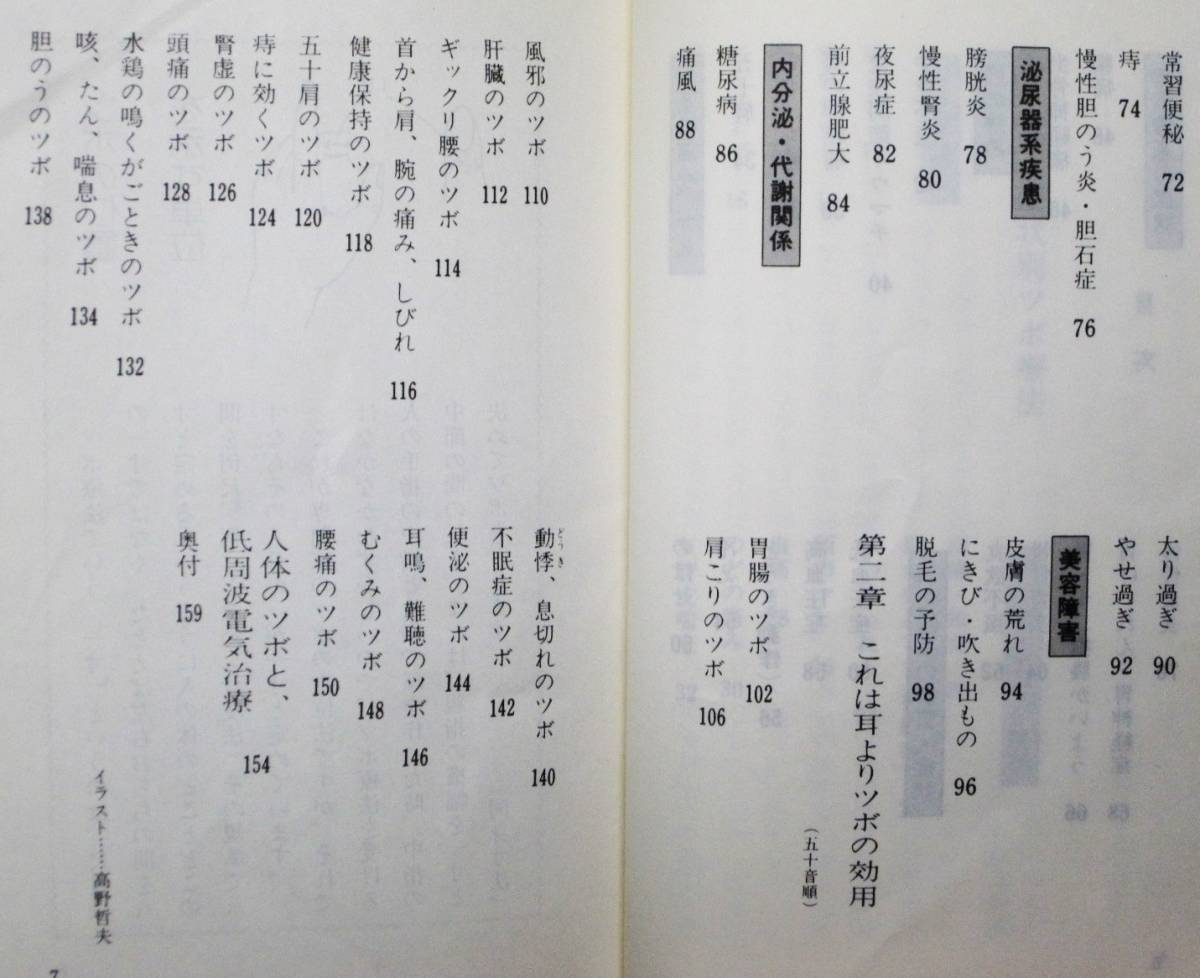 常習便秘 72
痔 74
慢性胆のう炎・胆石症 76
泌尿器系疾患
膀胱炎 78
慢性腎炎 80
夜尿症 82
前立腺肥大 84
内分泌・代謝関係
糖尿病 86
痛風 88
太り過ぎ 90
やせ過ぎ 92
美容障害
皮膚の荒れ 94
にきび・吹き出もの 96
脱毛の予防 98
第二章 これは耳よりツボの効用
(五十音順)
胃腸のツボ 102
肩こりのツボ 106
風邪のツボ 110
肝臓のツボ 112
ギックリ腰のツボ 114
首から肩、腕の痛み、しびれ 116
健康保持のツボ 118
五十肩のツボ 120
痔に効くツボ 124
腎虚のツボ 126
頭痛のツボ 128
水鶏の鳴くがごときのツボ 132
咳、たん、喘息のツボ 134
胆のうのツボ 138
動悸、息切れのツボ 140
どうき
不眠症のツボ 142
便泌のツボ 144
耳鳴、難聴のツボ 146
むくみのツボ 148
腰痛のツボ 150
人体のツボと、
低周波電気治療 154
奥付 159
イラスト……高野哲夫
7